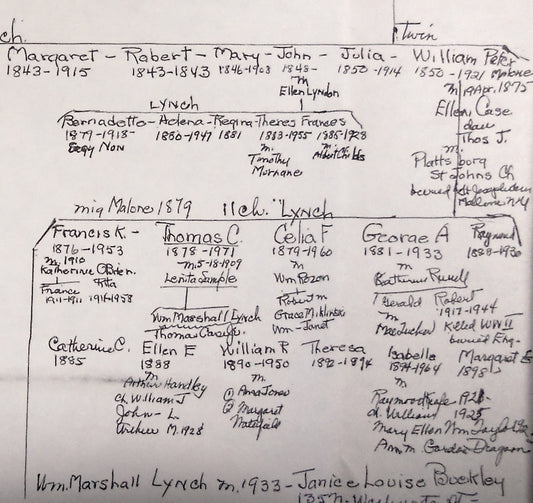 ch.
Twin
Margaret - Robert - Mary - John - Julia - William Peter
1843-1915 1843-1843 1846-1903 1848- 1850-1914 1850-1921 Malone
m
Ellen Lyndon
m 19 Apr. 1875
Ellen Case
dau
Thos J.
m.
Plattsborg
St Johns Ch
buried St Josephs
Malone NY
LYNCH
Bernadette - Helena - Regina - Theres Frances
1879-1918- 1880-1947 1881 1883-1955 1885-1928
m. m.
Timothy Albert Childs
Murnane
mig Malone 1879 11 ch. Lynch
Francis K - Thomas C. Celia F George A Raymond
1876-1953 1878-1971 1879-1960 1881-1933 1888-1930
m. 1910 m. 5-18-1909 m m
Katherine O'Brien. Lenita Sample Wm Rozon Katherine Russell
France Rita
1911-1911 1914-1958
Robert m
Grace Miklinski
Wm - Janet
Gerald Robert
m 1917-1944
Mae Tucker Killed WW II
buried Eng-
Wm Marshall Lynch
Thomas Casey Jr.
Catherine C. Ellen E William R Theresa Isabelle Margaret E
1885 1888 1890-1950 1892-1894 1894-1964 1898
m
Arthur Handley
ch William J
John - L
Arthur M. 1928
m.
① Anna Jones
② Margaret
m.
Raymond
d. William 1925
Mary Ellen Wm Taylor
Ann m. Gordon
Wm. Marshall Lynch m. 1933 - Janice Louise Buckley
135 N. Washington St